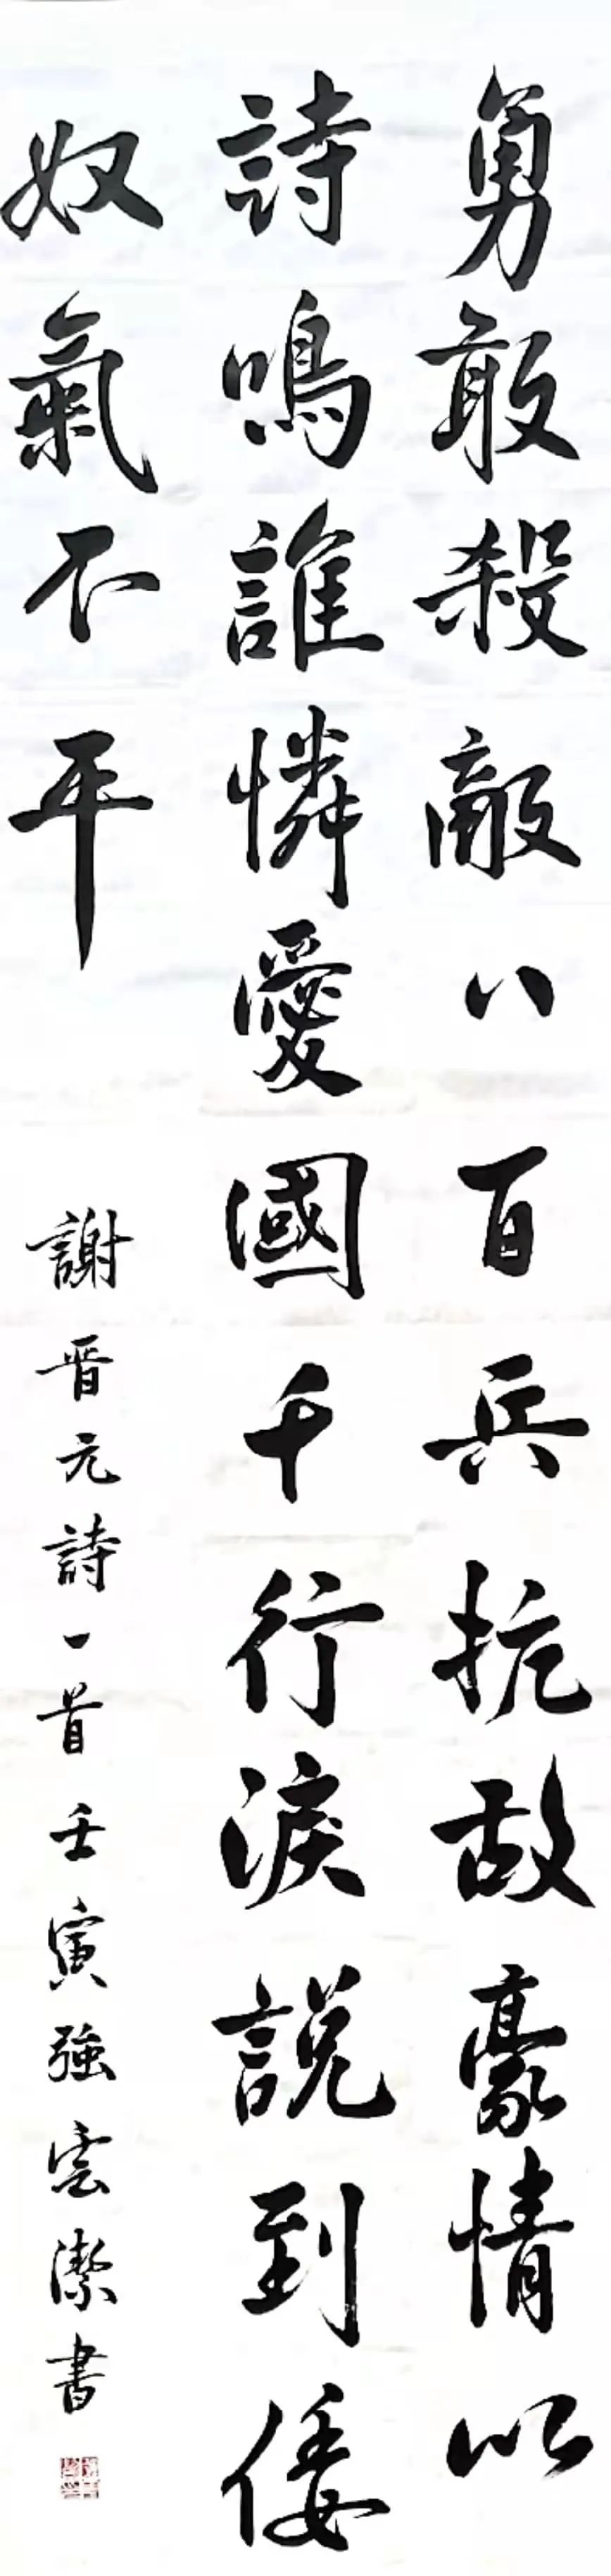 勇敢殺敵八百兵抗敌豪情以
詩鳴誰憐愛國千行淚説到倭
奴氣不平
謝晋元詩一首壬寅強雲潔書